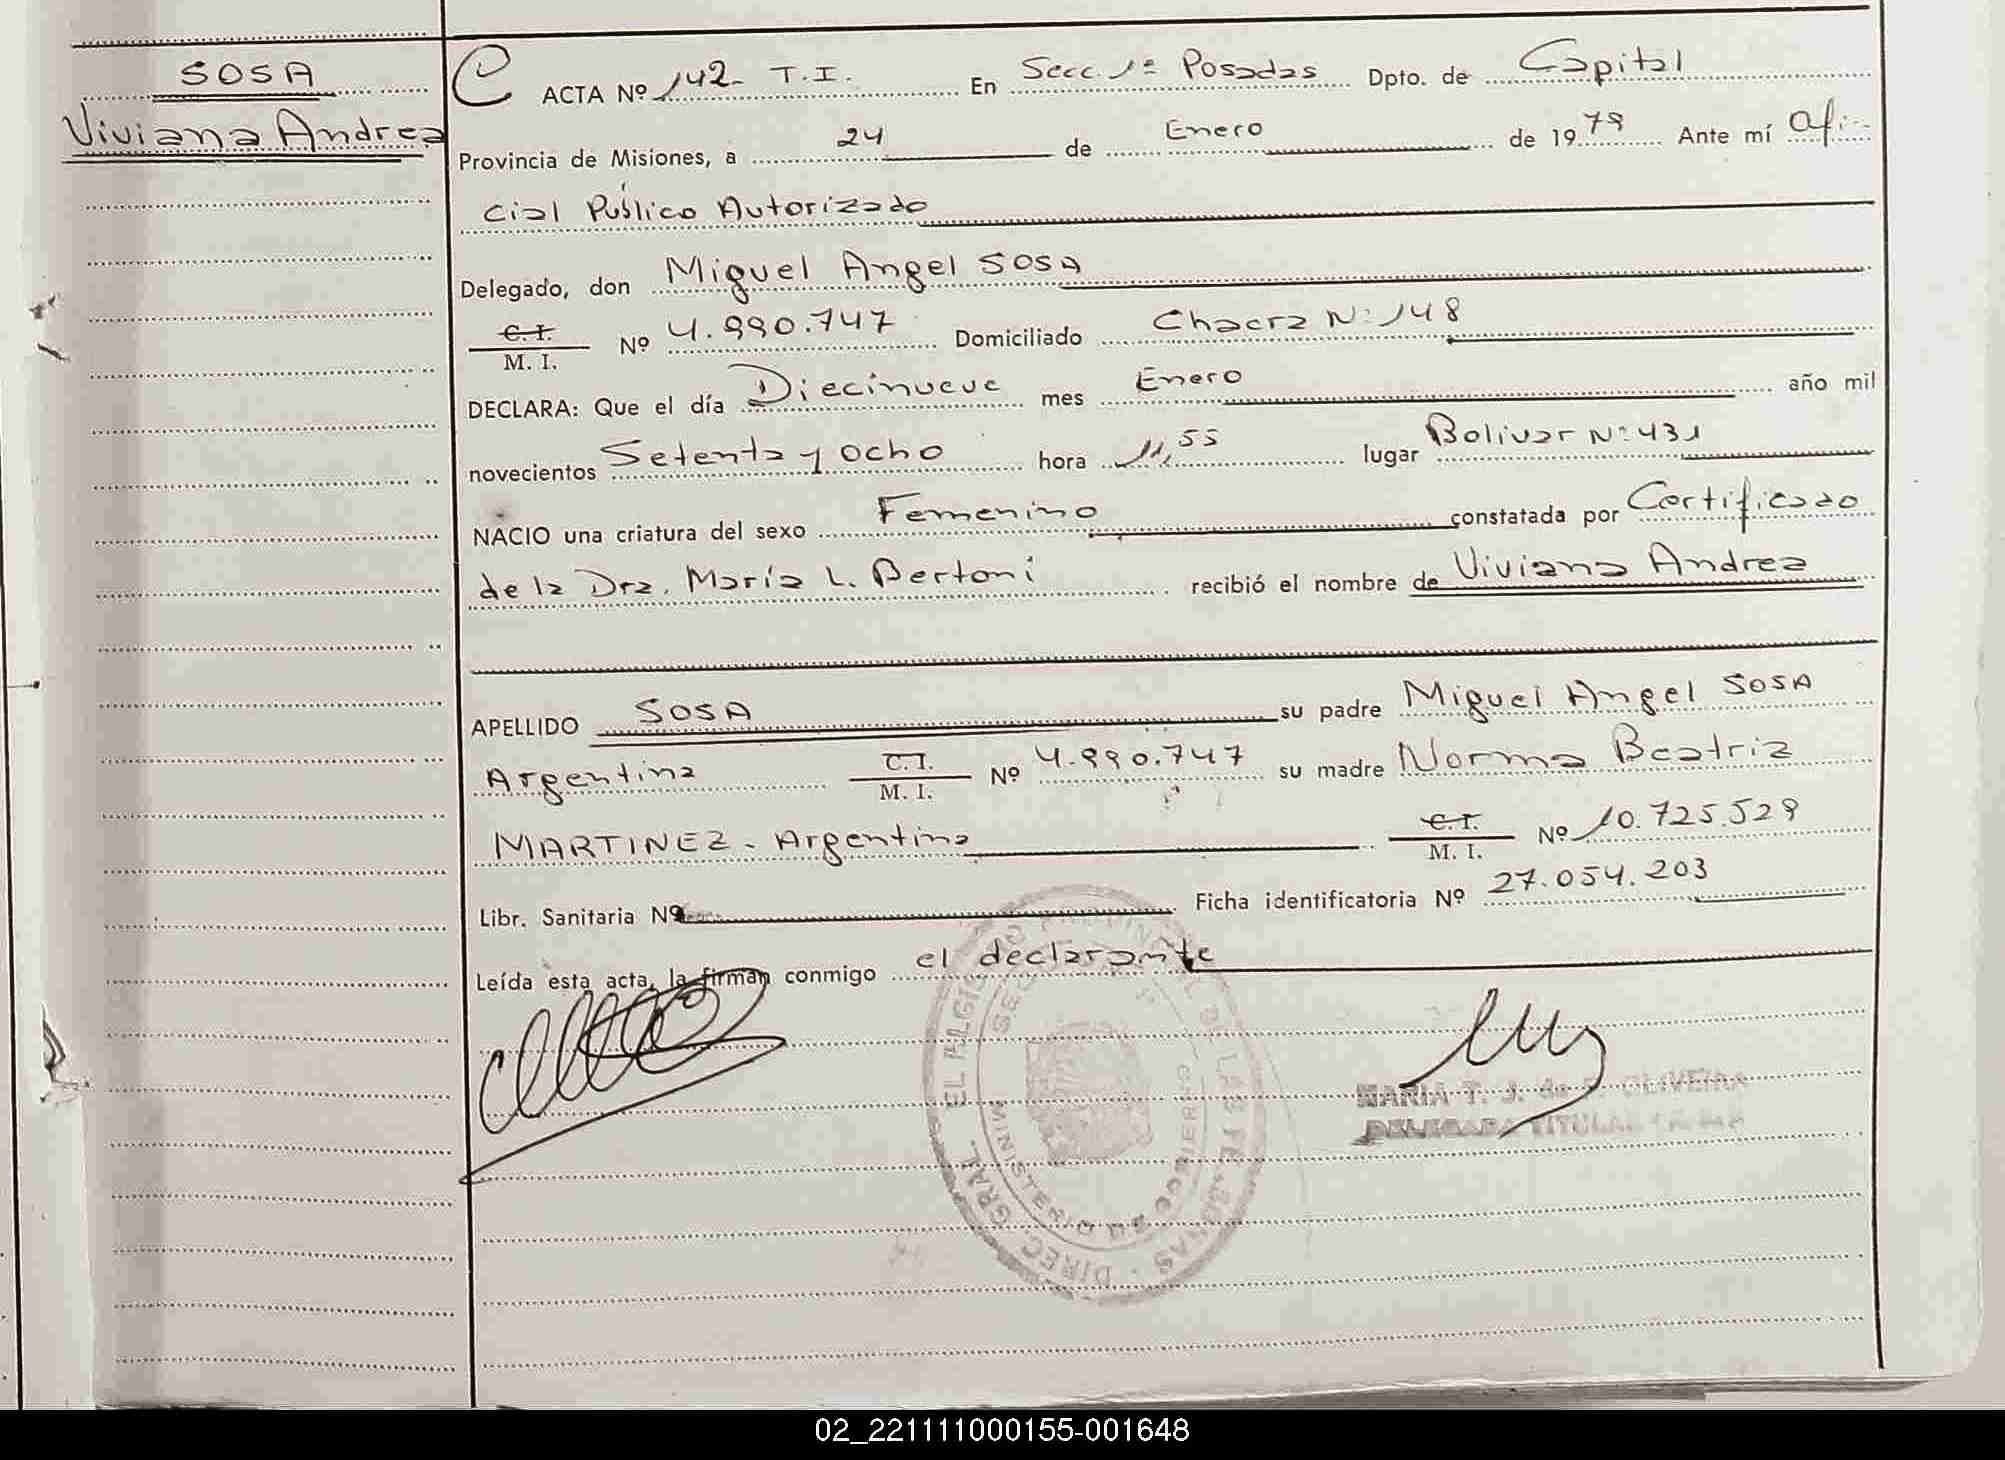 SOSA
Viviana Andrea
ACTA Nº 142- T.I. En Secc. 1ª Posadas Dpto. de Capital
Provincia de Misiones, a 24 de Enero de 1979 Ante mí Ofi-
cial Público Autorizado
Delegado, don Miguel Angel SOSA
C.I. M. I. Nº 4.990.747 Domiciliado Chacra Nº 148
DECLARA: Que el día Diecinueve mes Enero año mil
novecientos Setenta y ocho hora 11,55 lugar Bolivar Nº 431
NACIO una criatura del sexo Femenino constatada por Certificado
de la Dra. María L. Bertoni recibió el nombre de Viviana Andrea
APELLIDO SOSA su padre Miguel Angel SOSA
Argentina C.I. M. I. Nº 4.990.747 su madre Norma Beatriz
MARTINEZ - Argentina C.I. M. I. Nº 10.725.529
Libr. Sanitaria Nº Ficha identificatoria Nº 27.054.203
Leída esta acta, la firman conmigo el declarante
MARIA T. J. de OLIVEIRA
DELEGADA TITULAR
DIREC. GRAL. DEL REGISTRO PROVINCIAL DE LAS PERSONAS
MINISTERIO DE GOBIERNO
02_221111000155-001648